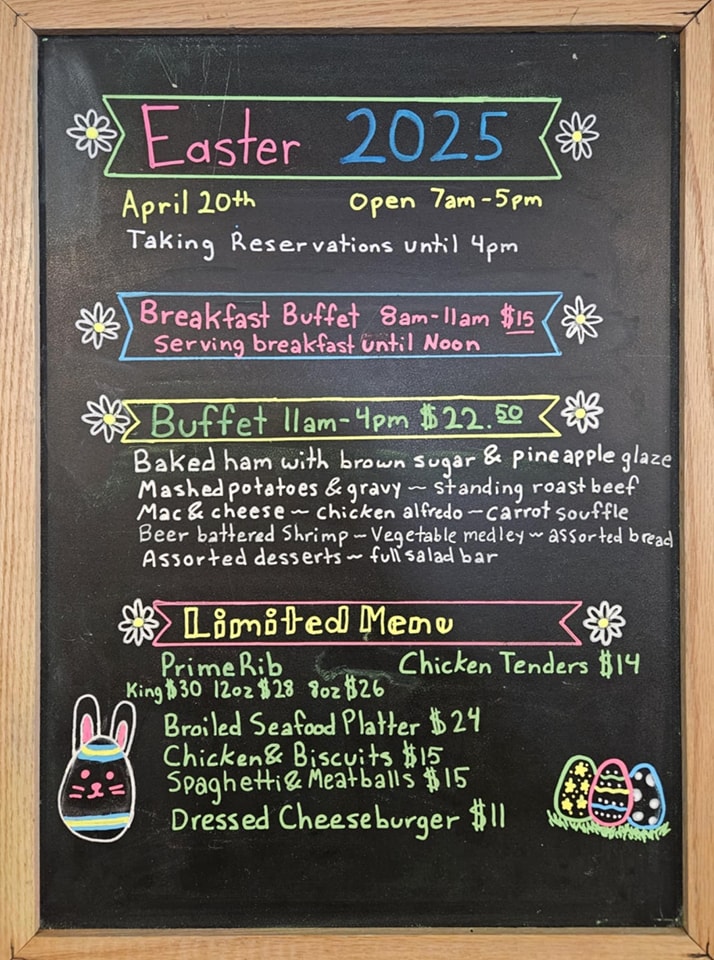 Easter 2025
April 20th Open 7am-5pm
Taking Reservations until 4pm
Breakfast Buffet 8am-11am $15
Serving breakfast until Noon
Buffet 11am-4pm $22.50
Baked ham with brown sugar & pineapple glaze
Mashed potatoes & gravy ~ standing roast beef
Mac & cheese ~ chicken alfredo ~ carrot souffle
Beer battered Shrimp ~ Vegetable medley ~ assorted bread
Assorted desserts ~ full salad bar
Limited Menu
Prime Rib Chicken Tenders $14
King $30 12oz $28 8oz $26
Broiled Seafood Platter $24
Chicken & Biscuits $15
Spaghetti & Meatballs $15
Dressed Cheeseburger $11